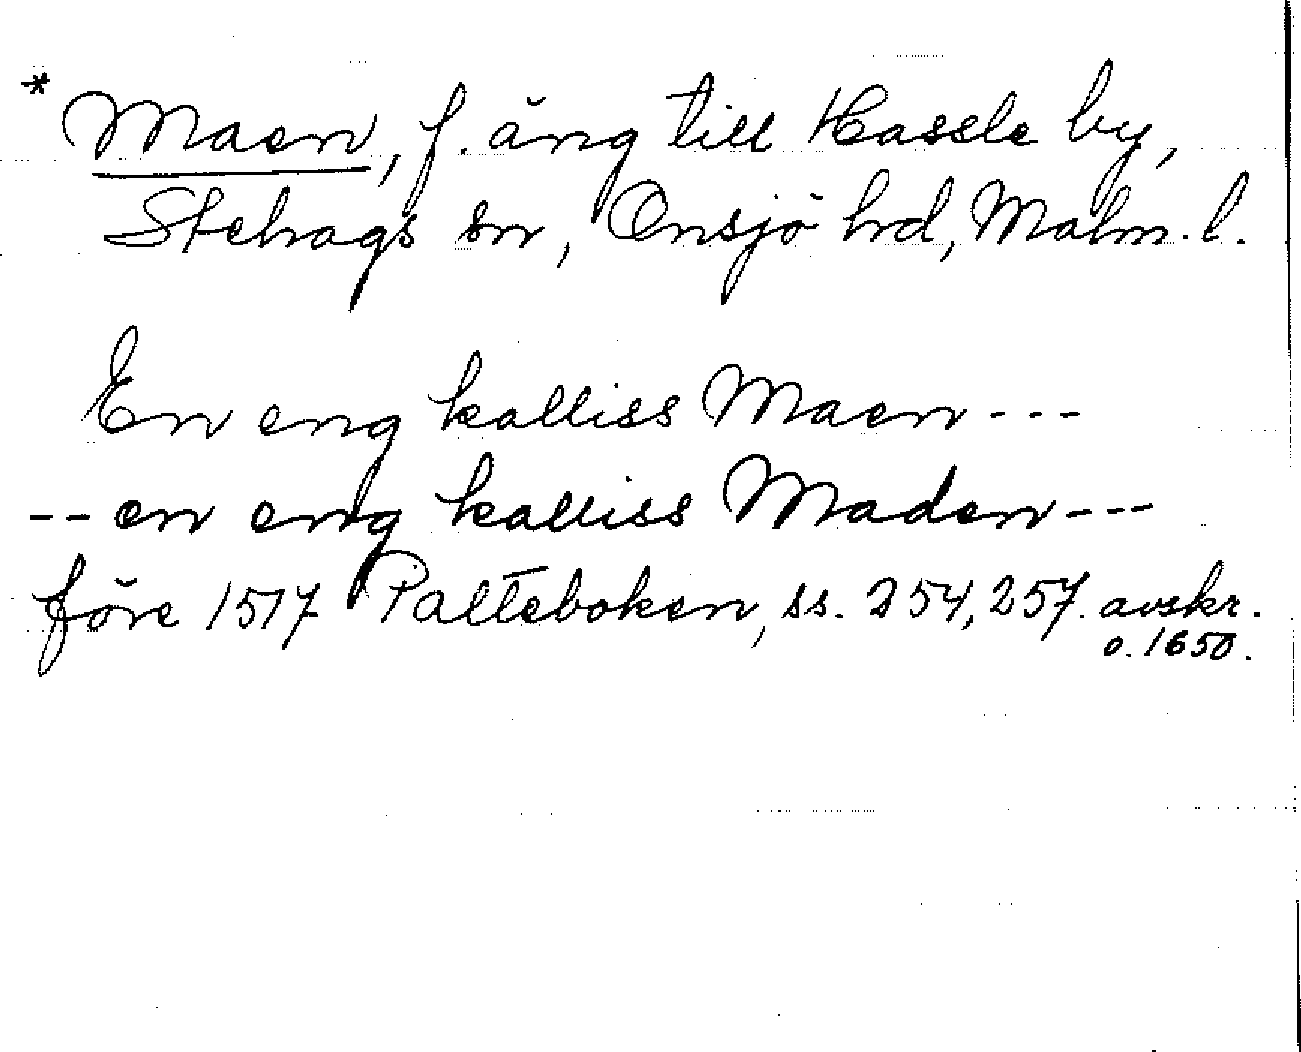 * Maen, f. äng till Hassle by,
Stehags sn, Onsjö hrd, Malm. l.
En eng kalliss Maen ---
-- en eng kalliss Maden ---
före 1517 Palteboken, ss. 254, 257. avskr.
o. 1650.